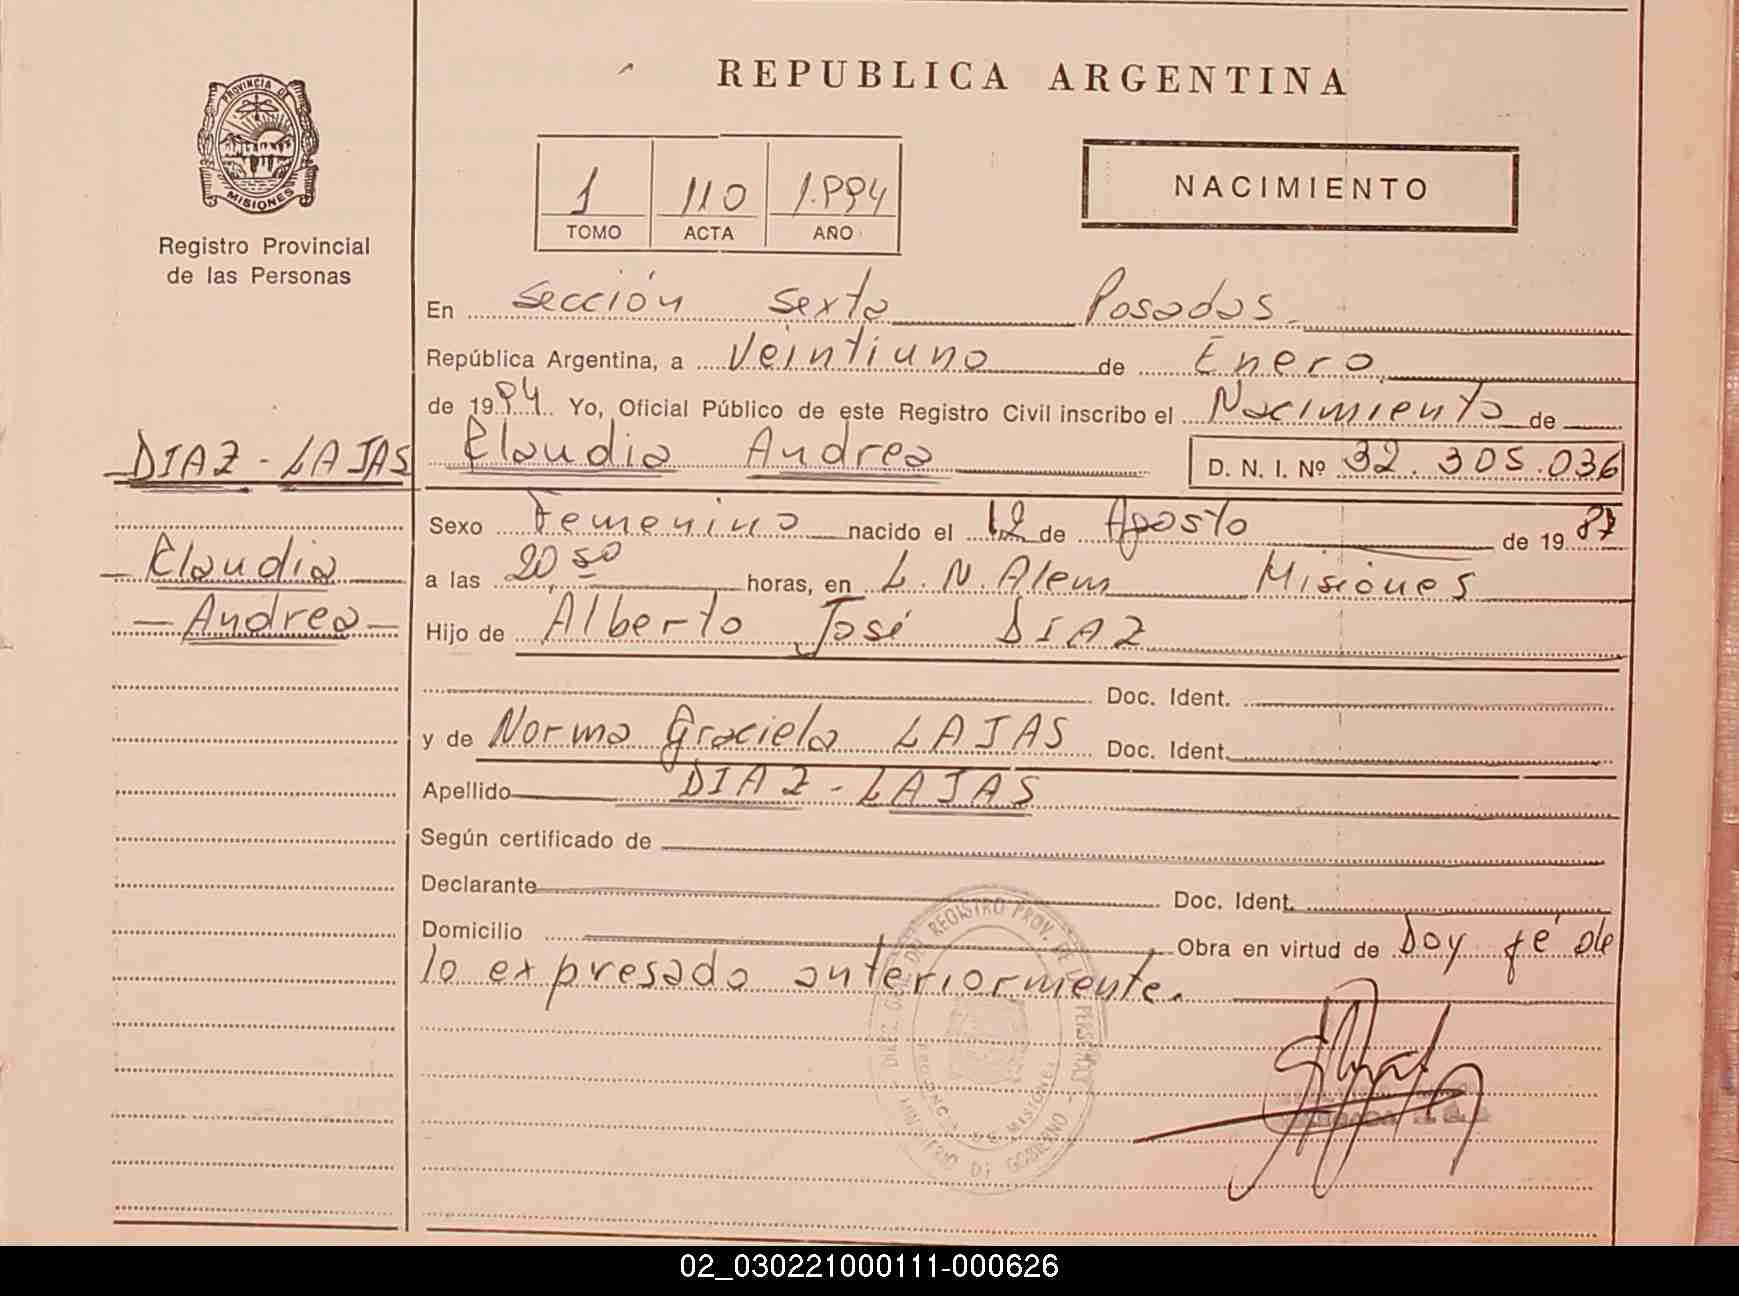 REPUBLICA ARGENTINA
PROVINCIA DE
MISIONES
Registro Provincial
de las Personas
1 110 1.994
TOMO ACTA AÑO
NACIMIENTO
En Sección Sexta Posadas.
República Argentina, a Veintiuno de Enero
de 1994. Yo, Oficial Público de este Registro Civil inscribo el Nacimiento de
DIAZ - LAJAS
Claudia Andrea D. N. I. Nº 32.305.036
Sexo Femenino nacido el 12 de Agosto de 1987
Claudia
a las 20 50 horas, en L. N. Alem Misiones
Andrea
Hijo de Alberto José DIAZ
Doc. Ident.
y de Norma Graciela LAJAS Doc. Ident.
Apellido DIAZ - LAJAS
Según certificado de
Declarante Doc. Ident.
Domicilio Obra en virtud de Doy fé de
lo expresado anteriormente.
REGISTRO PROV. DE LAS PERSONAS
MISIONES
02_030221000111-000626